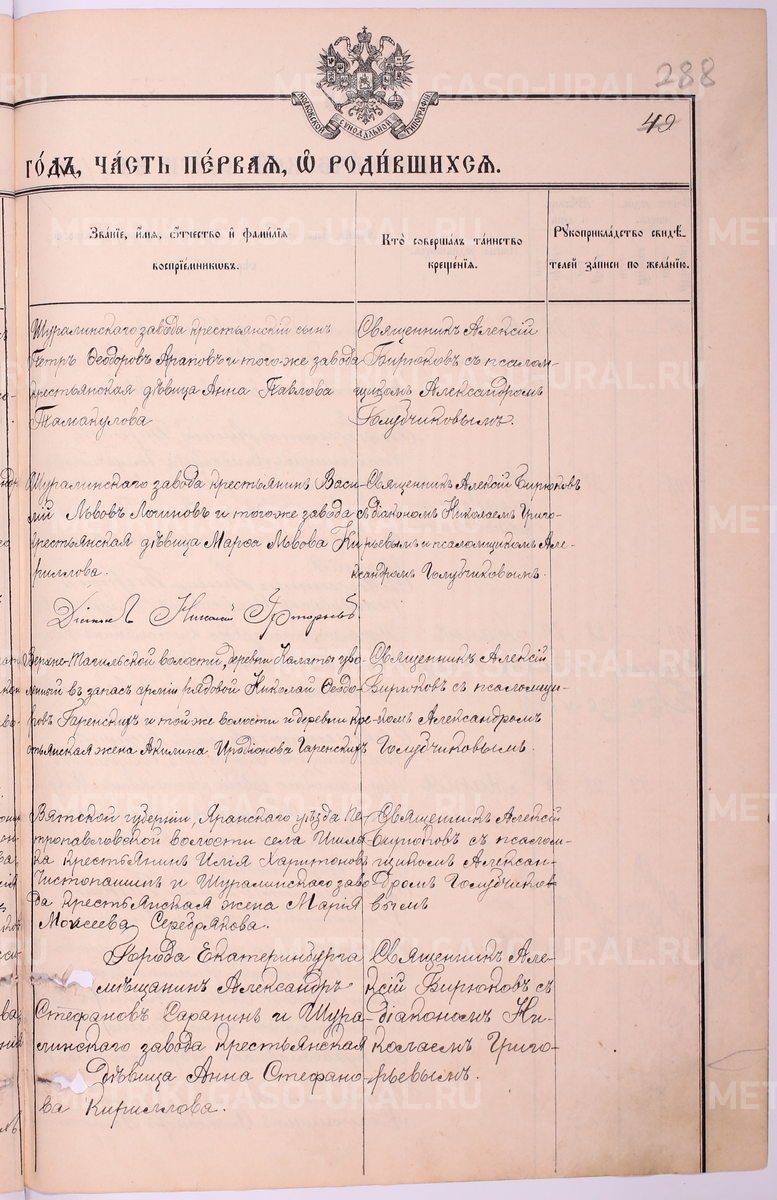 288
42
МОСКОВСКОЙ СѴНОДАЛЬНОЙ ТИПОГРАФІИ
го́дъ, ча́сть пе́рвая, ѡ҆ роди́вшихся.
Зва́нїе, и҆́мя, ѻ҆́тчество и҆ фами́лїя
воспрїе́мникѡвъ.
Кто̀ соверша́лъ та́инство
креще́нїя.
Рꙋкоприкла́дство свидѣ́-
телей за́писи по жела́нїю.
Шуралинскаго завода крестьянскій сынъ
Петръ Ѳеодоровъ Араповъ и того же завода
крестьянская дѣвица Анна Павлова
Тамакулова
Священникъ Алексій
Бирюковъ съ псалом-
щикомъ Александромъ
Голубчиковымъ.
Шуралинскаго завода крестьянинъ Васи-
лій Львовъ Логиновъ и того же завода
крестьянская дѣвица Марѳа Львова Ки
риллова.
Священникъ Алексій Бирюковъ
съ діакономъ Николаемъ Григо-
рьевымъ и псаломщикомъ Але-
ксандромъ Голубчиковымъ.
Николай
Верхне-Тагильской волости, деревни Калаты уво
ленный въ запасъ арміи рядовой Николай Ѳеодо-
ровъ Гаренскихъ и той же волости и деревни кре-
стьянская жена Акилина Иродіонова Гаренскихъ
Священникъ Алексій
Бирюковъ съ псаломщи-
комъ Александромъ
Голубчиковымъ.
Вятской губерніи, Яранскаго уѣзда Пе
тропавловской волости села
ка крестьянинъ Илія Харитоновъ
Чистопашинъ и Шуралинскаго заво
да крестьянская жена Марія
Моисеева Серебрякова.
Священникъ Алексій
Бирюковъ съ псалом-
щикомъ Алексан-
дромъ Голубчико-
вымъ
Города Екатеринбурга
мѣщанинъ Александръ
Стефановъ Сарапинъ и Шура
линскаго завода крестьянская
дѣвица Анна Стефано-
ва Кириллова.
Священникъ Але-
ксій Бирюковъ съ
діакономъ Ни-
колаемъ Григо-
рьевымъ.
METRIKI.GASO-URAL.RU